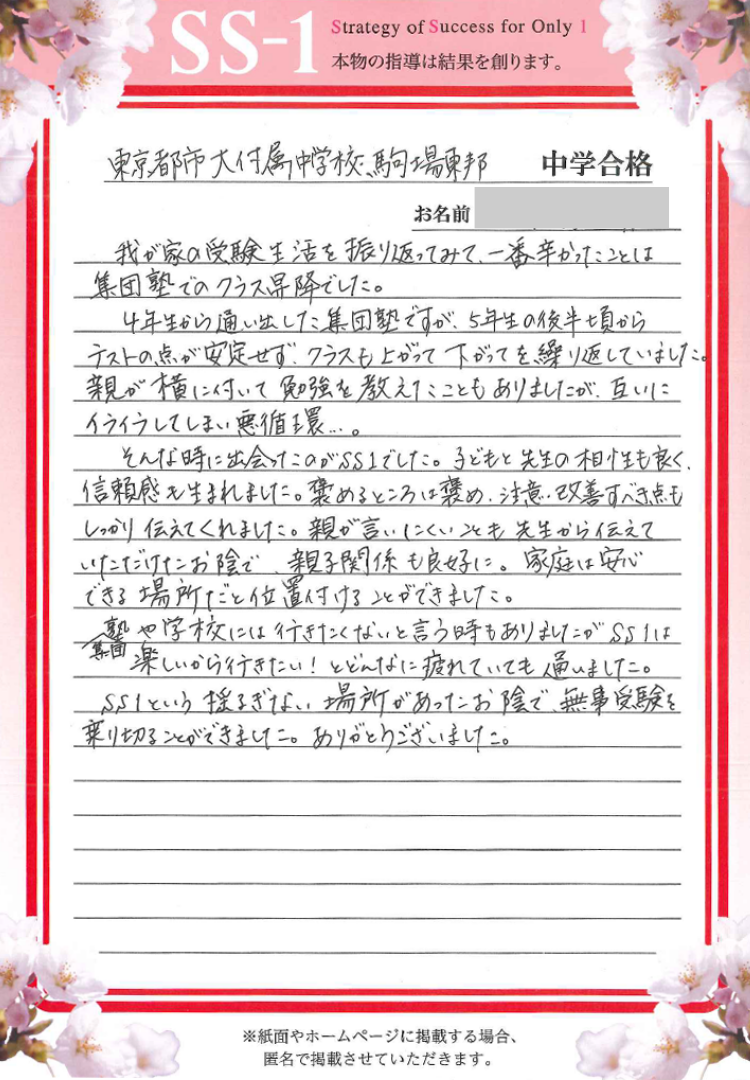 SS-1
Strategy of Success for Only 1
本物の指導は結果を創ります。
東京都市大付属中学校、駒場東邦 中学合格
お名前
我が家の受験生活を振り返ってみて、一番辛かったことは
集団塾でのクラス昇降でした。
4年生から通い出した集団塾ですが、5年生の後半頃から
テストの点が安定せず、クラスも上がって下がってを繰り返していました。
親が横に付いて勉強を教えたこともありましたが、互いに
イライラしてしまい悪循環…。
そんな時に出会ったのがSS1でした。子どもと先生の相性も良く、
信頼感も生まれました。褒めるところは褒め、注意・改善すべき点も
しっかり伝えてくれました。親が言いにくいことも先生から伝えて
いただけたお陰で、親子関係も良好に。家庭は安心
できる場所だと位置付けることができました。
集団塾や学校には行きたくないと言う時もありましたがSS1は
楽しいから行きたい!とどんなに疲れていても通いました。
SS1という揺るぎない場所があったお陰で、無事受験を
乗り切ることができました。ありがとうございました。
※紙面やホームページに掲載する場合、
匿名で掲載させていただきます。